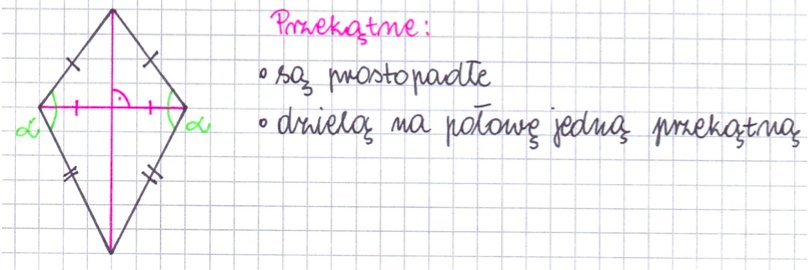 Przekątne:
• są prostopadłe
• dzielą na połowę jedną przekątną
α α